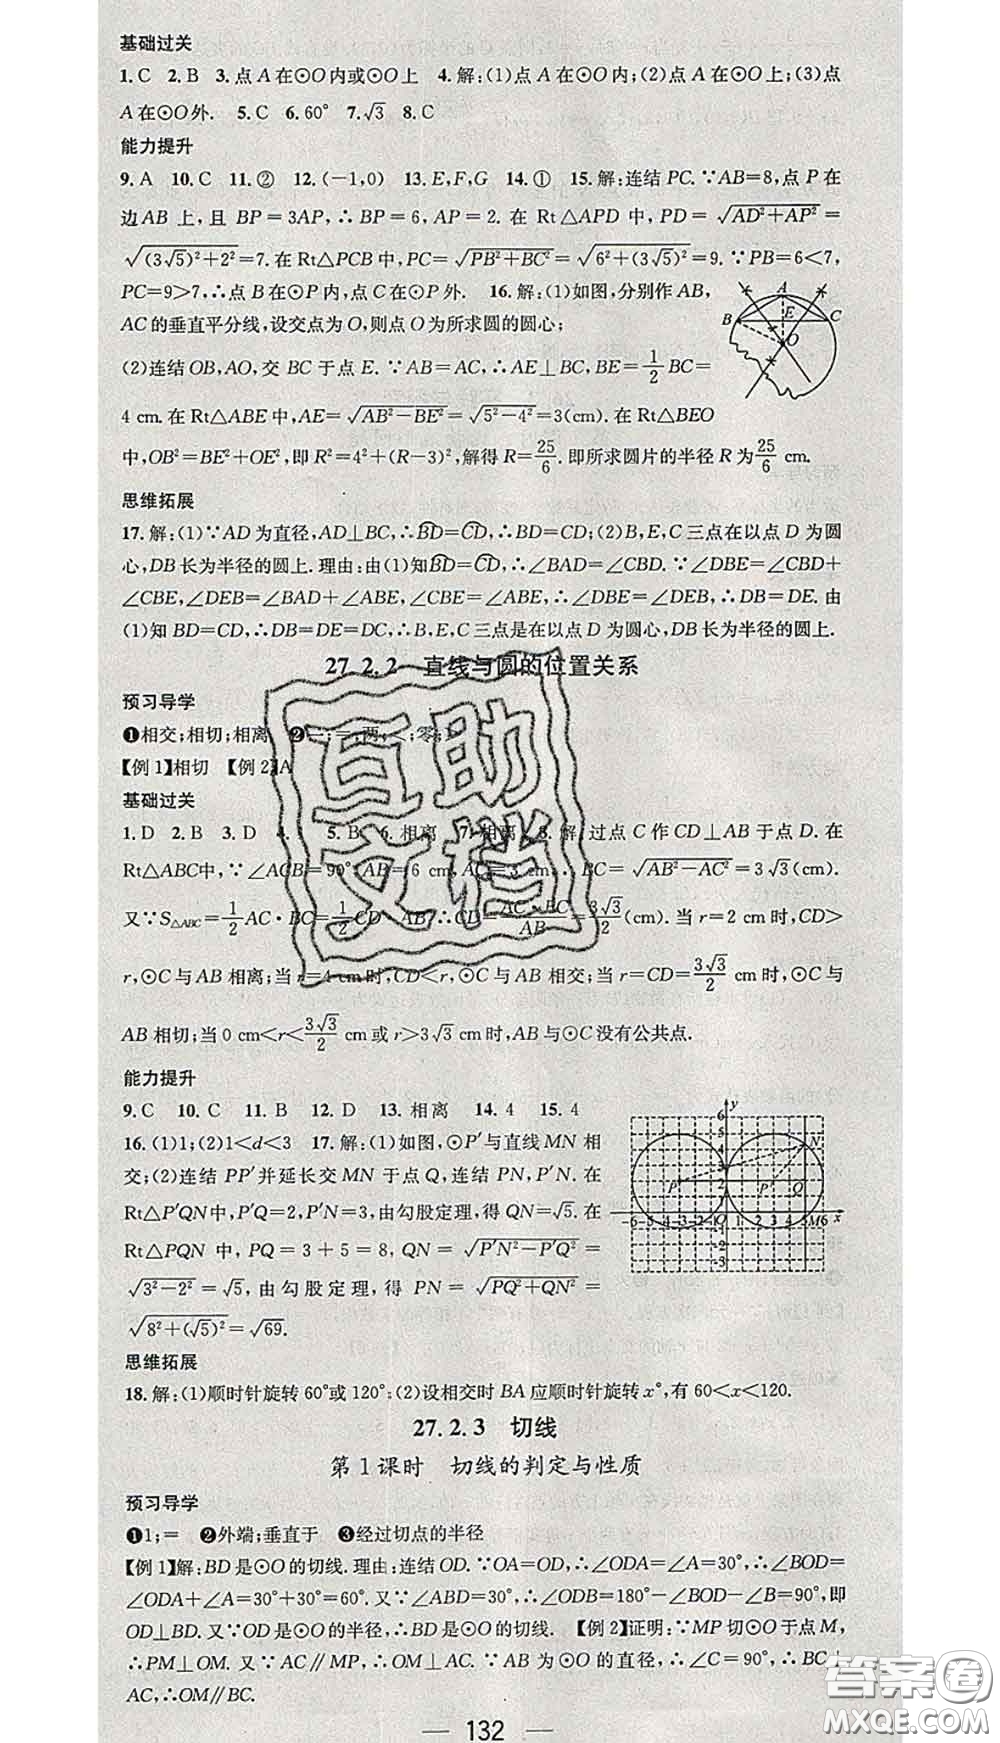 基础过关
1. C 2. B 3. 点 A 在⊙O 内或⊙O 上 4. 解:(1)点 A 在⊙O 内;(2)点 A 在⊙O 上;(3)点
A 在⊙O 外. 5. C 6. 60° 7. √3 8. C
能力提升
9. A 10. C 11. ② 12. (-1,0) 13. E,F,G 14. ① 15. 解:连结 PC. ∵AB=8,点 P 在
边 AB 上,且 BP=3AP,∴BP=6,AP=2. 在 Rt△APD 中,PD=√(AD²+AP²)=
√((3√5)²+2²)=7. 在 Rt△PCB 中,PC=√(PB²+BC²)=√(6²+(3√5)²)=9. ∵PB=6<7,
PC=9>7,∴点 B 在⊙P 内,点 C 在⊙P 外. 16. 解:(1)如图,分别作 AB,
AC 的垂直平分线,设交点为 O,则点 O 为所求圆的圆心;
(2)连结 OB,AO,交 BC 于点 E. ∵AB=AC,∴AE⊥BC,BE=1/2 BC=
4 cm. 在 Rt△ABE 中,AE=√(AB²-BE²)=√(5²-4²)=3(cm). 在 Rt△BEO
中,OB²=BE²+OE²,即 R²=4²+(R-3)²,解得 R=25/6. 即所求圆片的半径 R 为 25/6 cm.
A
B
E
C
O
思维拓展
17. 解:(1)∵AD 为直径,AD⊥BC,∴B͡D=C͡D,∴BD=CD;(2)B,E,C 三点在以点 D 为圆
心,DB 长为半径的圆上. 理由:由(1)知B͡D=C͡D,∴∠BAD=∠CBD. ∵∠DBE=∠CBD+
∠CBE,∠DEB=∠BAD+∠ABE,∠CBE=∠ABE,∴∠DBE=∠DEB,∴DB=DE. 由
(1)知 BD=CD,∴DB=DE=DC,∴B,E,C 三点是在以点 D 为圆心,DB 长为半径的圆上.
27. 2. 2 直线与圆的位置关系
预习导学
❶相交;相切;相离 ❷一;=;两;<;零;
【例 1】相切 【例 2】A
基础过关
1. D 2. B 3. D 4. 5. B 6. 相离 7. 相离 8. 解:过点 C 作 CD⊥AB 于点 D. 在
Rt△ABC 中,∵∠ACB=90°,AB=6 cm,AC=3 cm,∴BC=√(AB²-AC²)=3√3(cm).
又∵S△ABC=1/2 AC·BC=1/2 CD·AB,∴CD=AC·BC/AB=3√3/2(cm). 当 r=2 cm 时,CD>
r,⊙C 与 AB 相离;当 r=4 cm 时,CD<r,⊙C 与 AB 相交;当 r=CD=3√3/2 cm 时,⊙C 与
AB 相切;当 0 cm<r<3√3/2 cm 或 r>3√3 cm 时,AB 与⊙C 没有公共点.
能力提升
9. C 10. C 11. B 12. D 13. 相离 14. 4 15. 4
16. (1)1;(2)1<d<3 17. 解:(1)如图,⊙P′与直线 MN 相
交;(2)连结 PP′并延长交 MN 于点 Q,连结 PN,P′N. 在
Rt△P′QN 中,P′Q=2,P′N=3,由勾股定理,得 QN=√5. 在
Rt△PQN 中,PQ=3+5=8,QN=√(P′N²-P′Q²)=
√(3²-2²)=√5,由勾股定理,得 PN=√(PQ²+QN²)=
√(8²+(√5)²)=√69.
思维拓展
18. 解:(1)顺时针旋转 60°或 120°;(2)设相交时 BA 应顺时针旋转 x°,有 60<x<120.
27. 2. 3 切线
第 1 课时 切线的判定与性质
预习导学
❶1;= ❷外端;垂直于 ❸经过切点的半径
【例 1】解:BD 是⊙O 的切线. 理由:连结 OD. ∵OA=OD,∴∠ODA=∠A=30°,∴∠BOD=
∠ODA+∠A=30°+30°=60°. 又∵∠ABD=30°,∴∠ODB=180°-∠BOD-∠B=90°,即
OD⊥BD. 又∵OD 是⊙O 的半径,∴BD 是⊙O 的切线. 【例 2】证明:∵MP 切⊙O 于点 M,
∴PM⊥OM. 又∵AC∥MP,∴OM⊥AC. ∵AB 为⊙O 的直径,∴∠C=90°,∴BC⊥
AC,∴OM∥BC.
— 132 —
互助文档
答案圈
MXQE.COM